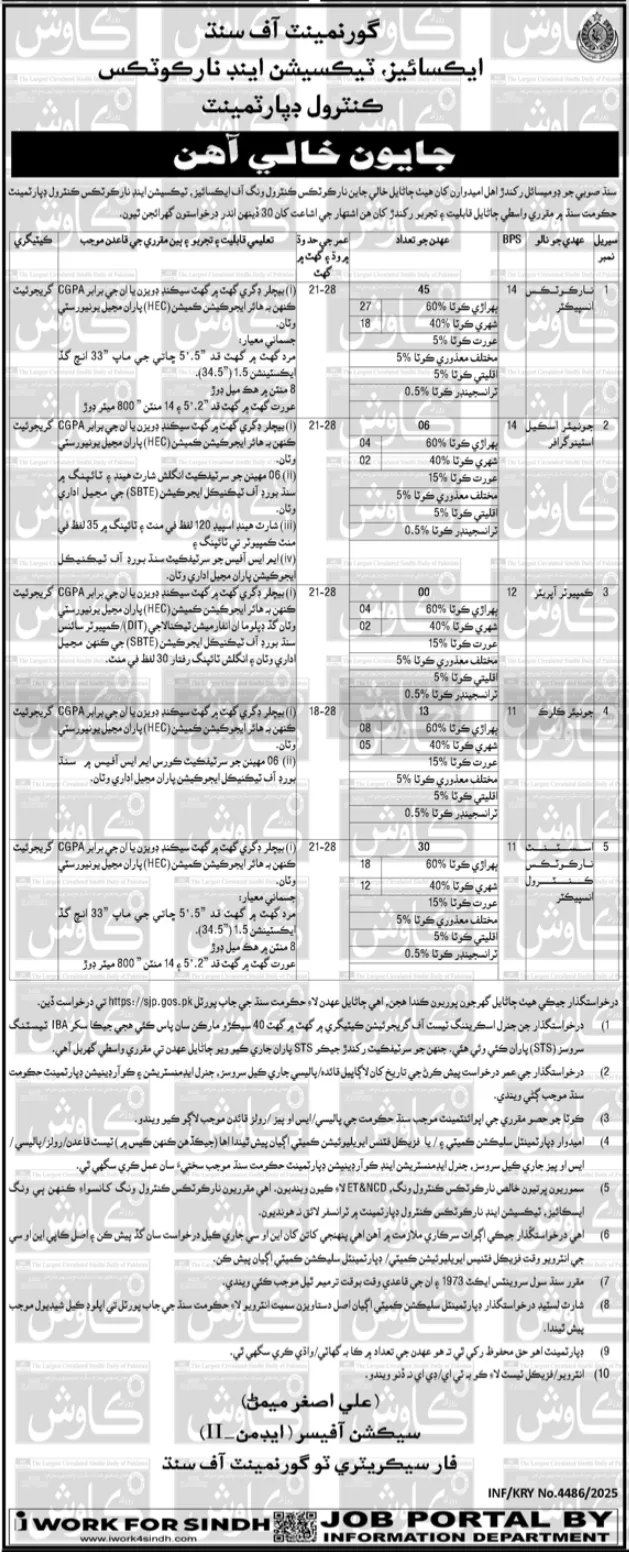 گورنمينٽ آف سنڌ
ايڪسائيز، ٽيڪسيشن اينڊ نارڪوٽڪس
ڪنٽرول ڊپارٽمينٽ
جايون خالي آهن
سنڌ صوبي جو ڊوميسائل رکندڙ اهل اميدوارن کان هيٺ ڄاڻايل خالي جاين نارڪوٽڪس ڪنٽرول ونگ آف ايڪسائيز، ٽيڪسيشن اينڊ نارڪوٽڪس ڪنٽرول ڊپارٽمينٽ
حڪومت سنڌ ۾ مقرري واسطي ڄاڻايل قابليت ۽ تجربو رکندڙ کان هن اشتهار جي اشاعت کان 30 ڏينهن اندر درخواستون گهرائجن ٿيون.
سيريل نمبر | عهدي جو نالو | BPS | عهدن جو تعداد | عمر جي حد وڌ ۾ وڌ ۽ گهٽ ۾ گهٽ | تعليمي قابليت ۽ تجربو ۽ ٻين مقرري جي قاعدن موجب | ڪيٽيگري
1 | نارڪوٽڪس انسپيڪٽر | 14 | 45 | 21-28 | (i) بيچلر ڊگري گهٽ ۾ گهٽ سيڪنڊ ڊويزن يا ان جي برابر CGPA | گريجوئيٽ
ٻهراڙي ڪوٽا 60% | 27 | ڪنهن به هائر ايجوڪيشن ڪميشن (HEC) پاران مڃيل يونيورسٽي
شهري ڪوٽا 40% | 18 | وٽان.
عورت ڪوٽا 5% | جسماني معيار:
مختلف معذوري ڪوٽا 5% | مرد گهٽ ۾ گهٽ قد "5.'5 ڇاتي جي ماپ "33 انچ گڏ
اقليتي ڪوٽا 5% | ايڪسٽينشن 1.5 ("34.5).
ٽرانسجينڊر ڪوٽا 0.5% | 8 منٽن ۾ هڪ ميل ڊوڙ
عورت گهٽ ۾ گهٽ قد "2.'5 ۽ 14 منٽن " 800 ميٽر ڊوڙ
2 | جونيئر اسڪيل اسٽينوگرافر | 14 | 06 | 21-28 | (i) بيچلر ڊگري گهٽ ۾ گهٽ سيڪنڊ ڊويزن يا ان جي برابر CGPA | گريجوئيٽ
ٻهراڙي ڪوٽا 60% | 04 | ڪنهن به هائر ايجوڪيشن ڪميشن (HEC) پاران مڃيل يونيورسٽي
شهري ڪوٽا 40% | 02 | وٽان.
عورت ڪوٽا 15% | (ii) 06 مهينن جو سرٽيفڪيٽ انگلش شارٽ هينڊ ۽ ٽائپنگ ۾
مختلف معذوري ڪوٽا 5% | سنڌ بورڊ آف ٽيڪنيڪل ايجوڪيشن (SBTE) جي مڃيل اداري
اقليتي ڪوٽا 5% | وٽان.
ٽرانسجينڊر ڪوٽا 0.5% | (iii) شارٽ هينڊ اسپيڊ 120 لفظ في منٽ ۽ ٽائپنگ ۾ 35 لفظ في
منٽ ڪمپيوٽر تي ٽائپنگ ۽
(iv) ايم ايس آفيس جو سرٽيفڪيٽ سنڌ بورڊ آف ٽيڪنيڪل
ايجوڪيشن پاران مڃيل اداري وٽان.
3 | ڪمپيوٽر آپريٽر | 12 | 00 | 21-28 | (i) بيچلر ڊگري گهٽ ۾ گهٽ سيڪنڊ ڊويزن يا ان جي برابر CGPA | گريجوئيٽ
ٻهراڙي ڪوٽا 60% | 04 | ڪنهن به هائر ايجوڪيشن ڪميشن (HEC) پاران مڃيل يونيورسٽي
شهري ڪوٽا 40% | 02 | وٽان گڏ ڊپلوما ان انفارميشن ٽيڪنالاجي (DIT)/ڪمپيوٽر سائنس
عورت ڪوٽا 15% | سنڌ بورڊ آف ٽيڪنيڪل ايجوڪيشن (SBTE) جي ڪنهن مڃيل
مختلف معذوري ڪوٽا 5% | اداري وٽان ۽ انگلش ٽائپنگ رفتار 30 لفظ في منٽ.
اقليتي ڪوٽا 5%
ٽرانسجينڊر ڪوٽا 0.5%
4 | جونيئر ڪلارڪ | 11 | 13 | 18-28 | (i) بيچلر ڊگري گهٽ ۾ گهٽ سيڪنڊ ڊويزن يا ان جي برابر CGPA | گريجوئيٽ
ٻهراڙي ڪوٽا 60% | 08 | ڪنهن به هائر ايجوڪيشن ڪميشن (HEC) پاران مڃيل يونيورسٽي
شهري ڪوٽا 40% | 05 | وٽان.
عورت ڪوٽا 15% | (ii) 06 مهينن جو سرٽيفڪيٽ ڪورس ايم ايس آفيس ۾ سنڌ
مختلف معذوري ڪوٽا 5% | بورڊ آف ٽيڪنيڪل ايجوڪيشن پاران مڃيل اداري وٽان.
اقليتي ڪوٽا 5%
ٽرانسجينڊر ڪوٽا 0.5%
5 | اسسٽنٽ نارڪوٽڪس ڪنٽرول انسپيڪٽر | 11 | 30 | 21-28 | (i) بيچلر ڊگري گهٽ ۾ گهٽ سيڪنڊ ڊويزن يا ان جي برابر CGPA | گريجوئيٽ
ٻهراڙي ڪوٽا 60% | 18 | ڪنهن به هائر ايجوڪيشن ڪميشن (HEC) پاران مڃيل يونيورسٽي
شهري ڪوٽا 40% | 12 | وٽان.
عورت ڪوٽا 15% | جسماني معيار:
مختلف معذوري ڪوٽا 5% | مرد گهٽ ۾ گهٽ قد "5.'5 ڇاتي جي ماپ "33 انچ گڏ
اقليتي ڪوٽا 5% | ايڪسٽينشن 1.5 ("34.5).
ٽرانسجينڊر ڪوٽا 0.5% | 8 منٽن ۾ هڪ ميل ڊوڙ
عورت گهٽ ۾ گهٽ قد "2.'5 ۽ 14 منٽن " 800 ميٽر ڊوڙ
درخواستگذار جيڪي هيٺ ڄاڻايل گهرجون پوريون ڪندا هجن، اهي ڄاڻايل عهدن لاءِ حڪومت سنڌ جي جاب پورٽل https://sjp.gos.pk تي درخواست ڏين.
1) درخواستگذار جن جنرل اسڪريننگ ٽيسٽ آف گريجوئيشن ڪيٽيگري ۾ گهٽ ۾ گهٽ 40 سيڪڙو مارڪن سان پاس ڪئي هجي جيڪا سکر IBA ٽيسٽنگ
سروسز (STS) پاران ڪئي وئي هئي، جنهن جو سرٽيفڪيٽ رکندڙ جيڪو STS پاران جاري ڪيو ويو ڄاڻايل عهدن تي مقرري واسطي گهربل آهي.
2) درخواستگذار جي عمر درخواست پيش ڪرڻ جي تاريخ کان لاڳاپيل قائدہ/پاليسي جاري ڪيل سروسز، جنرل ايڊمنسٽريشن ۽ ڪوآرڊينيشن ڊپارٽمينٽ حڪومت
سنڌ موجب ڳڻي ويندي.
3) ڪوٽا جو حصو مقرري جي اپوائنٽمينٽ موجب سنڌ حڪومت جي پاليسي/ايس او پيز/رولز قائدن موجب لاڳو ڪيو ويندو.
4) اميدوار ڊپارٽمينٽل سليڪشن ڪميٽي ۽/ يا فزيڪل فٽنس ايويليوئيشن ڪميٽي اڳيان پيش ٿيندا اها (جيڪڏهن ڪنهن ڪيس ۾) ٽيسٽ قاعدن/رولز/پاليسي/
ايس او پيز جاري ڪيل سروسز، جنرل ايڊمنسٽريشن اينڊ ڪوآرڊينيشن ڊپارٽمينٽ حڪومت سنڌ موجب سختيءَ سان عمل ڪري سگهي ٿي.
5) سموريون ڀرتيون خالص نارڪوٽڪس ڪنٽرول ونگ، ET&NCD لاءِ ڪيون وينديون. اهي مقرريون نارڪوٽڪس ڪنٽرول ونگ کانسواءِ ڪنهن ٻي ونگ
ايڪسائيز، ٽيڪسيشن اينڊ نارڪوٽڪس ڪنٽرول ڊپارٽمينٽ ۾ ٽرانسفر لائق نه هونديون.
6) اهي درخواستگذار جيڪي اڳواٽ سرڪاري ملازمت ۾ آهن اهي پنهنجي کاتن کان اين او سي جاري ڪيل درخواست سان گڏ پيش ڪن ۽ اصل ڪاپي اين او سي
جي انٽرويو وقت فزيڪل فٽنس ايويليوئيشن ڪميٽي/ ڊپارٽمينٽل سليڪشن ڪميٽي اڳيان پيش ڪن.
7) مقرر سنڌ سول سرونٽس ايڪٽ 1973 ۽ ان جي قاعدي وقت بوقت ترميم ٿيل موجب ڪئي ويندي.
8) شارٽ لسٽيڊ درخواستگذار ڊپارٽمينٽل سليڪشن ڪميٽي اڳيان اصل دستاويزن سميت انٽرويو لاءِ حڪومت سنڌ جي جاب پورٽل تي اپلوڊ ڪيل شيڊيول موجب
پيش ٿيندا.
9) ڊپارٽمينٽ اهو حق محفوظ رکي ٿي ته هو عهدن جي تعداد ۾ ڪا به گهٽائي/واڌي ڪري سگهي ٿي.
10) انٽرويو/فزيڪل ٽيسٽ لاءِ ڪو به ٽي اي/ڊي اي نه ڏنو ويندو.
(علي اصغر ميمڻ)
سيڪشن آفيسر (ايڊمن-II)
فار سيڪريٽري ٽو گورنمينٽ آف سنڌ
INF/KRY No.4486/2025
i WORK FOR SINDH
www.iwork4sindh.com
JOB PORTAL BY
INFORMATION DEPARTMENT